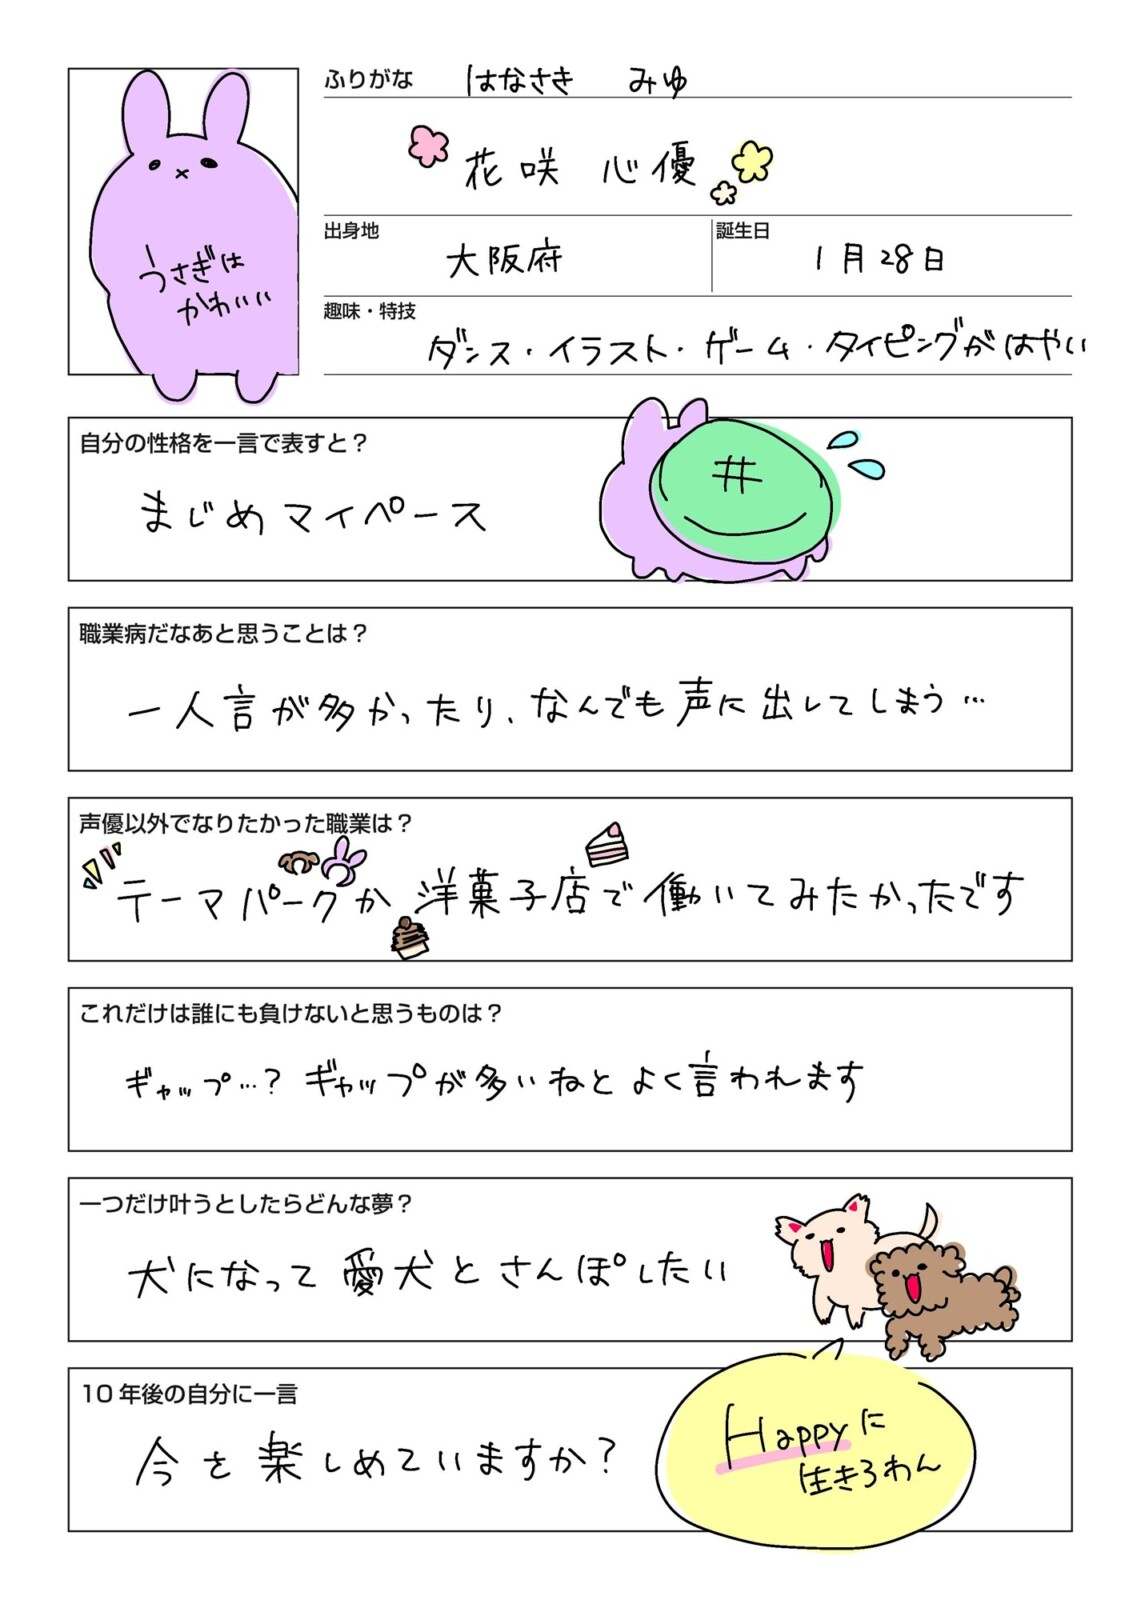 ふりがな はなさき みゆ
花咲 心優
出身地 大阪府 誕生日 1月28日
趣味・特技
ダンス・イラスト・ゲーム・タイピングがはやい
うさぎは
かわいい
自分の性格を一言で表すと？
まじめマイペース
職業病だなあと思うことは？
一人言が多かったり、なんでも声に出してしまう…
声優以外でなりたかった職業は？
テーマパークか洋菓子店で働いてみたかったです
これだけは誰にも負けないと思うものは？
ギャップ…？ギャップが多いねとよく言われます
一つだけ叶うとしたらどんな夢？
犬になって愛犬とさんぽしたい
10年後の自分に一言
今を楽しめていますか？
Happyに
生きろわん